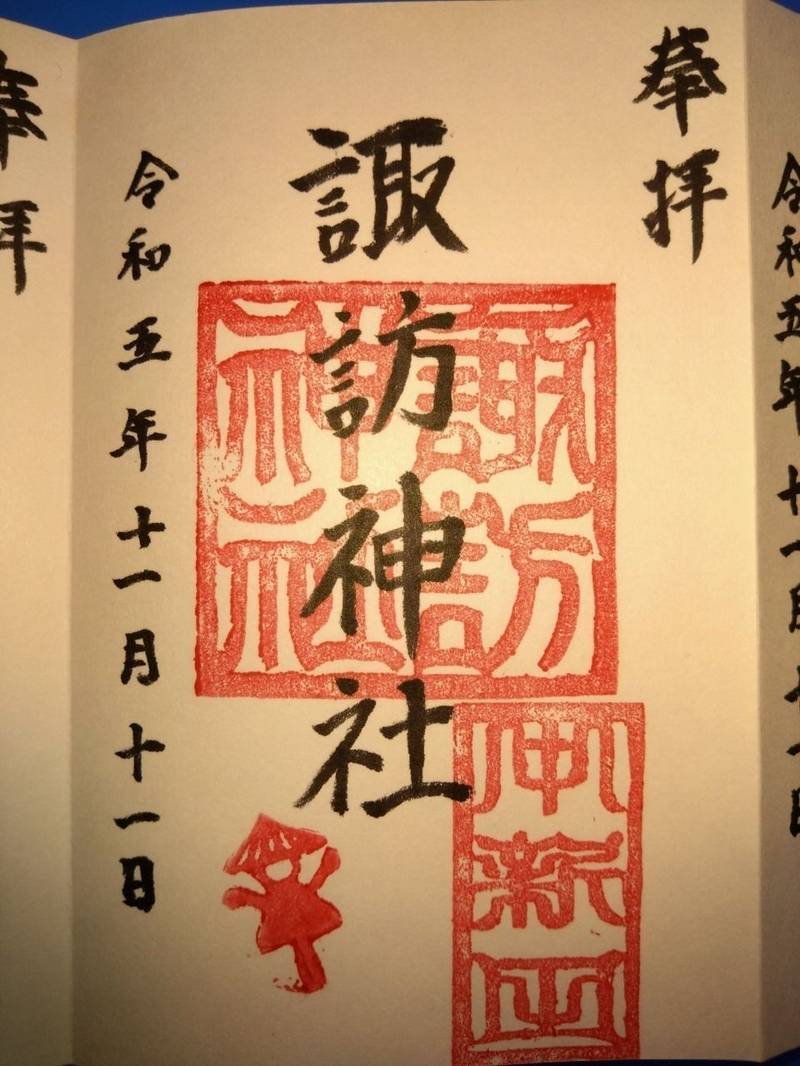 令和五年十一月十一日
奉拝
諏訪神社
諏訪
神社
中新田
令和五年十一月十一日
奉拝